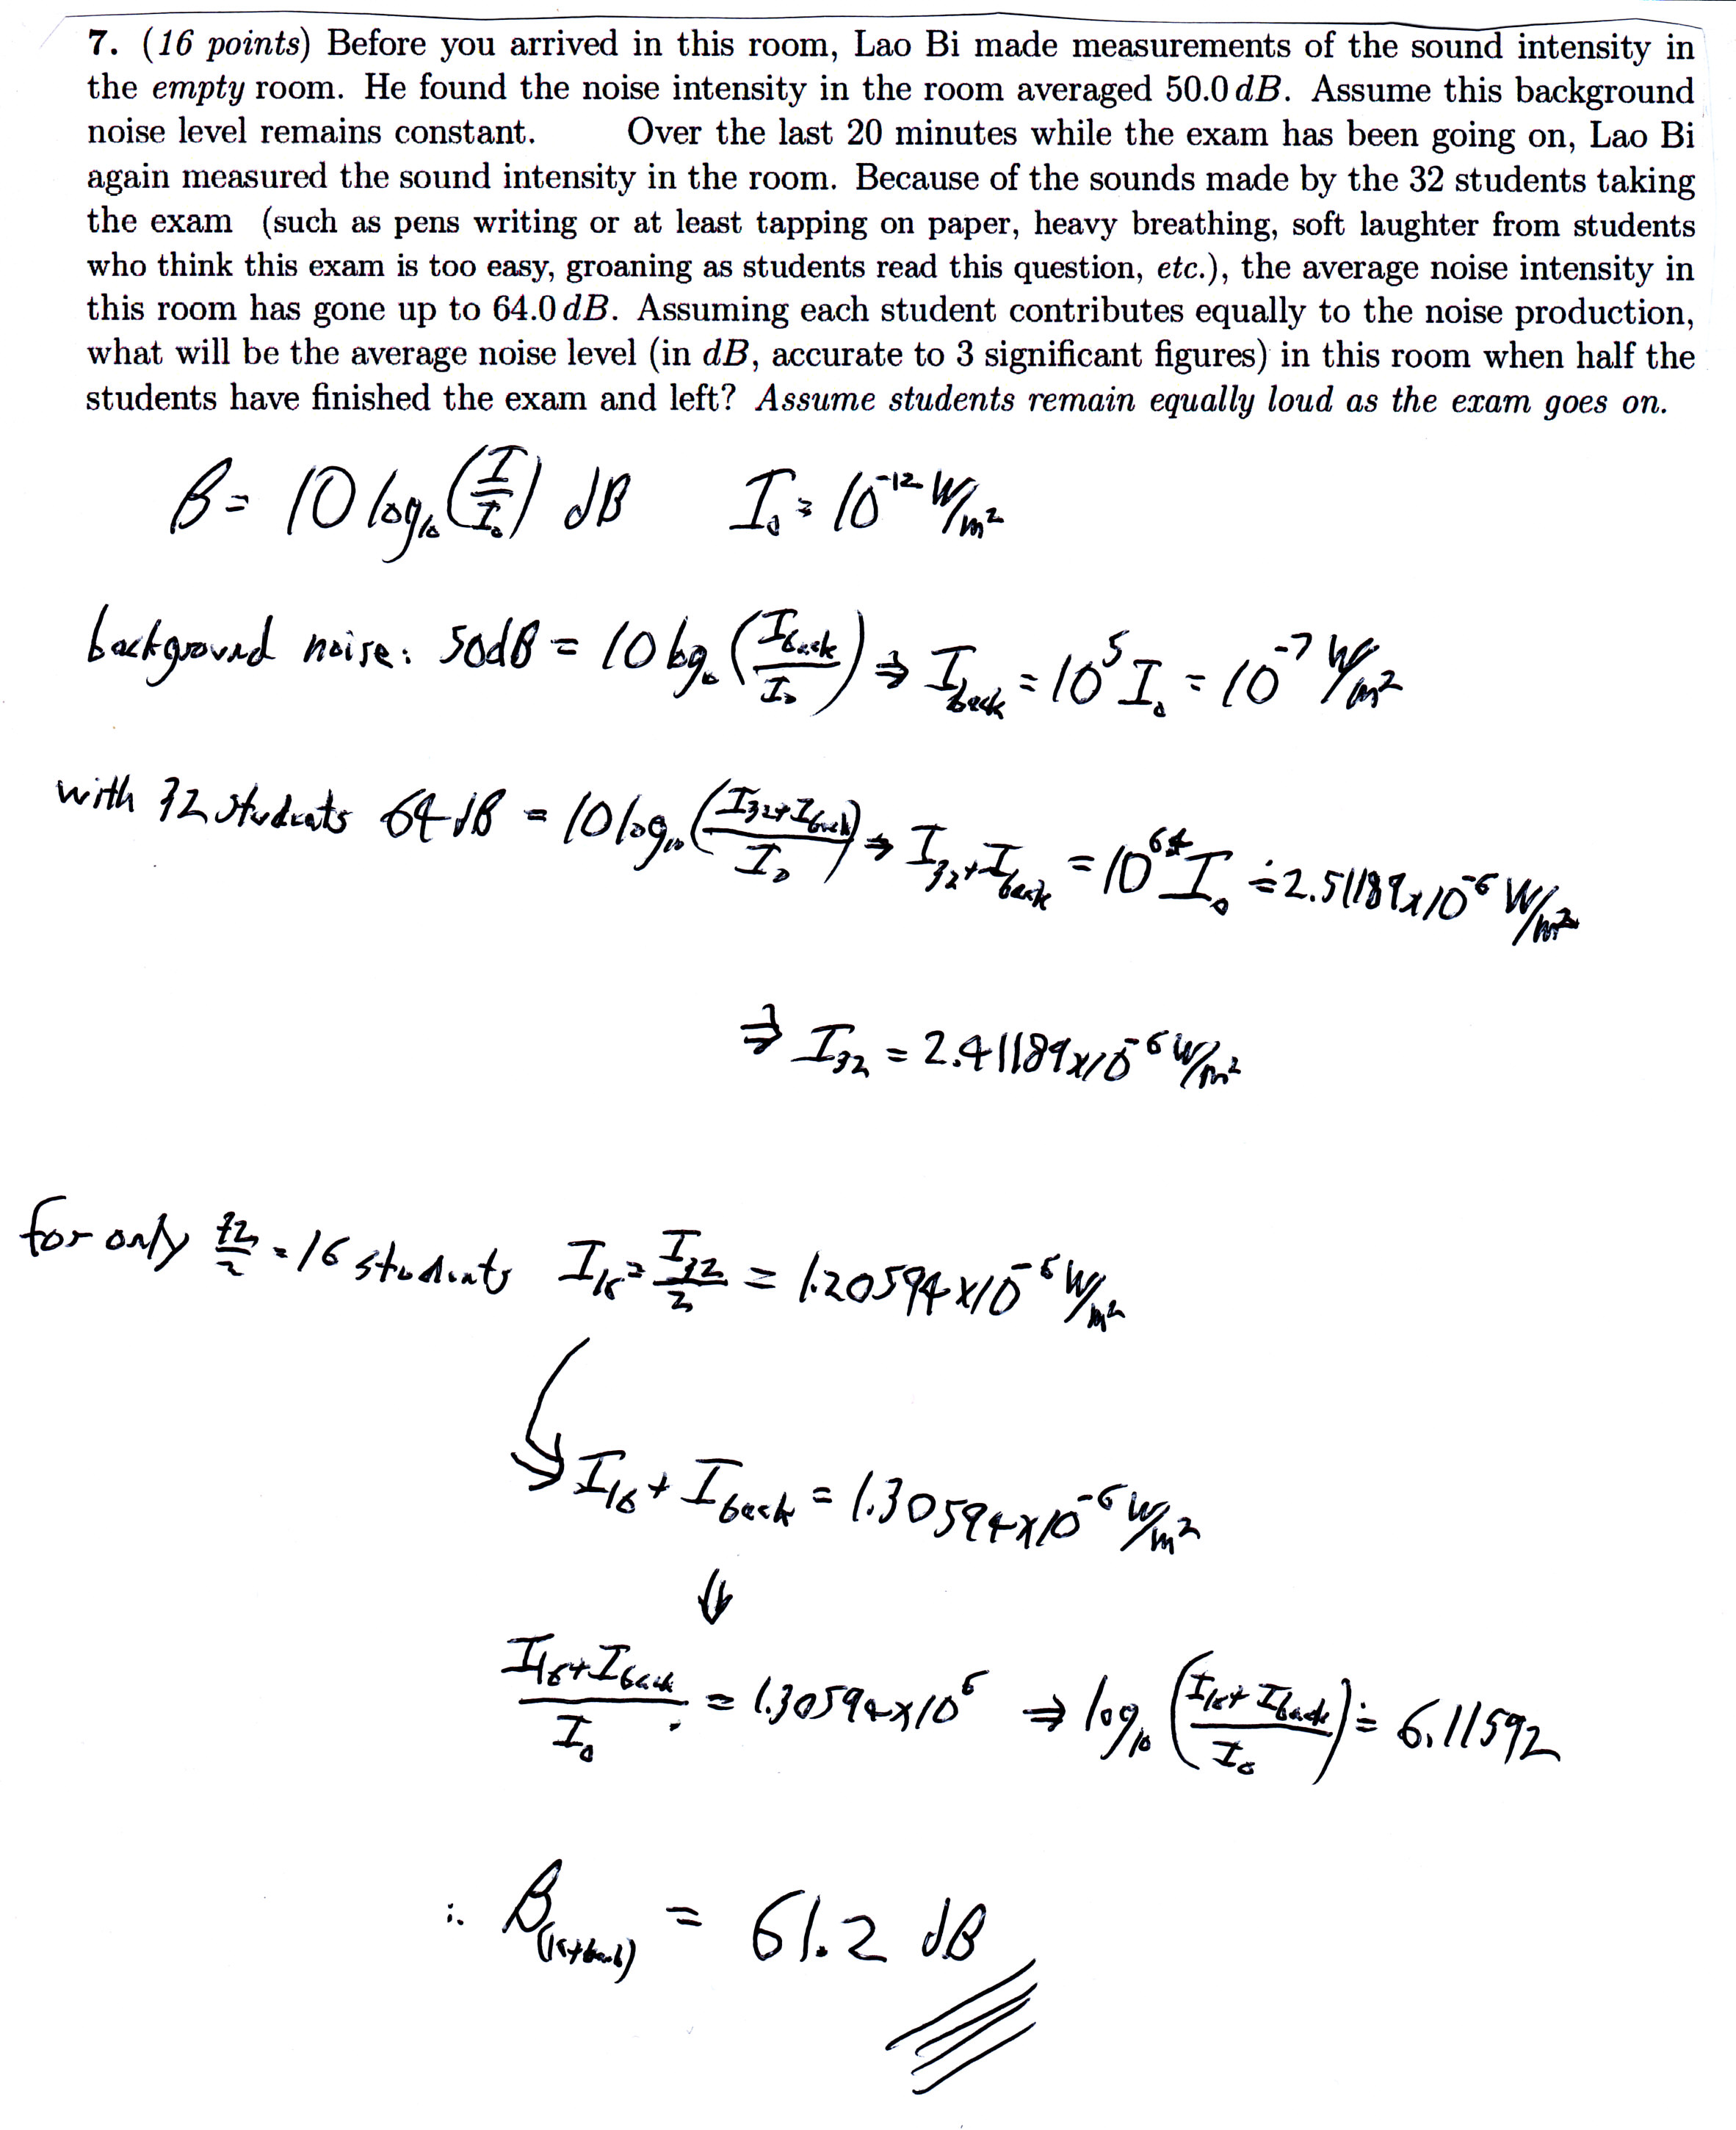 7. (16 points) Before you arrived in this room, Lao Bi made measurements of the sound intensity in
the empty room. He found the noise intensity in the room averaged 50.0 dB. Assume this background
noise level remains constant. Over the last 20 minutes while the exam has been going on, Lao Bi
again measured the sound intensity in the room. Because of the sounds made by the 32 students taking
the exam (such as pens writing or at least tapping on paper, heavy breathing, soft laughter from students
who think this exam is too easy, groaning as students read this question, etc.), the average noise intensity in
this room has gone up to 64.0 dB. Assuming each student contributes equally to the noise production,
what will be the average noise level (in dB, accurate to 3 significant figures) in this room when half the
students have finished the exam and left? Assume students remain equally loud as the exam goes on.
β = 10 log₁₀ (I/I₀) dB I₀ = 10⁻¹² W/m²
background noise: 50dB = 10 log₁₀ (I_back/I₀) ⇒ I_back = 10⁵ I₀ = 10⁻⁷ W/m²
with 32 students 64 dB = 10 log₁₀ ((I₃₂+I_back)/I₀) ⇒ I₃₂+I_back = 10^6.4 I₀ ≐ 2.51189x10⁻⁶ W/m²
⇒ I₃₂ = 2.41189x10⁻⁶ W/m²
for only 32/2 = 16 students I₁₆ = I₃₂/2 = 1.20594x10⁻⁶ W/m²
→ I₁₆ + I_back = 1.30594x10⁻⁶ W/m²
⇓
(I₁₆+I_back)/I₀ = 1.30594x10⁶ ⇒ log₁₀ ((I₁₆+I_back)/I₀) ≐ 6.11592
∴ β_(16+back) = 61.2 dB